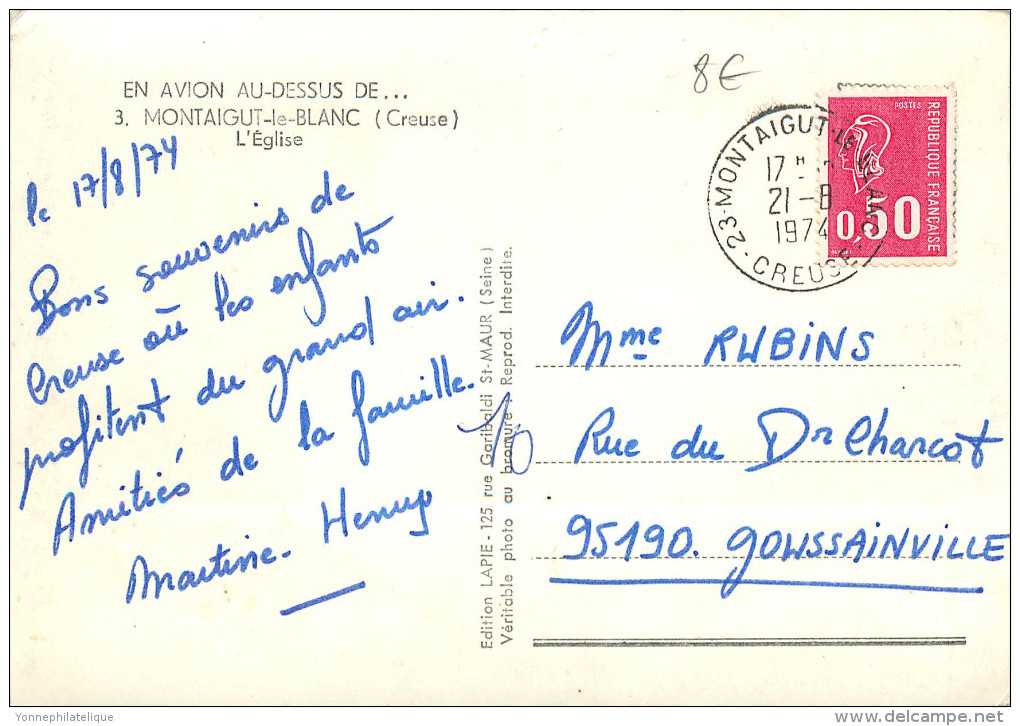 8€
EN AVION AU-DESSUS DE...
3. MONTAIGUT-le-BLANC (Creuse)
L'Église
le 17/8/74
Bons souvenirs de
Creuse où les enfants
profitent du grand air.
Amitiés de la famille.
Martine-
Edition LAPIE - 125 rue Garibaldi St-MAUR (Seine)
Véritable photo au bromure : Reprod. Interdite.
23-MONTAIGUT-LE-BLANC-CREUSE-
17H
21-8
1974
POSTES
REPUBLIQUE FRANÇAISE
0,50
Mme RUBINS
10
Rue du Dr Charcot
95190. GOUSSAINVILLE
Yonnephilatelique
delcampe.net